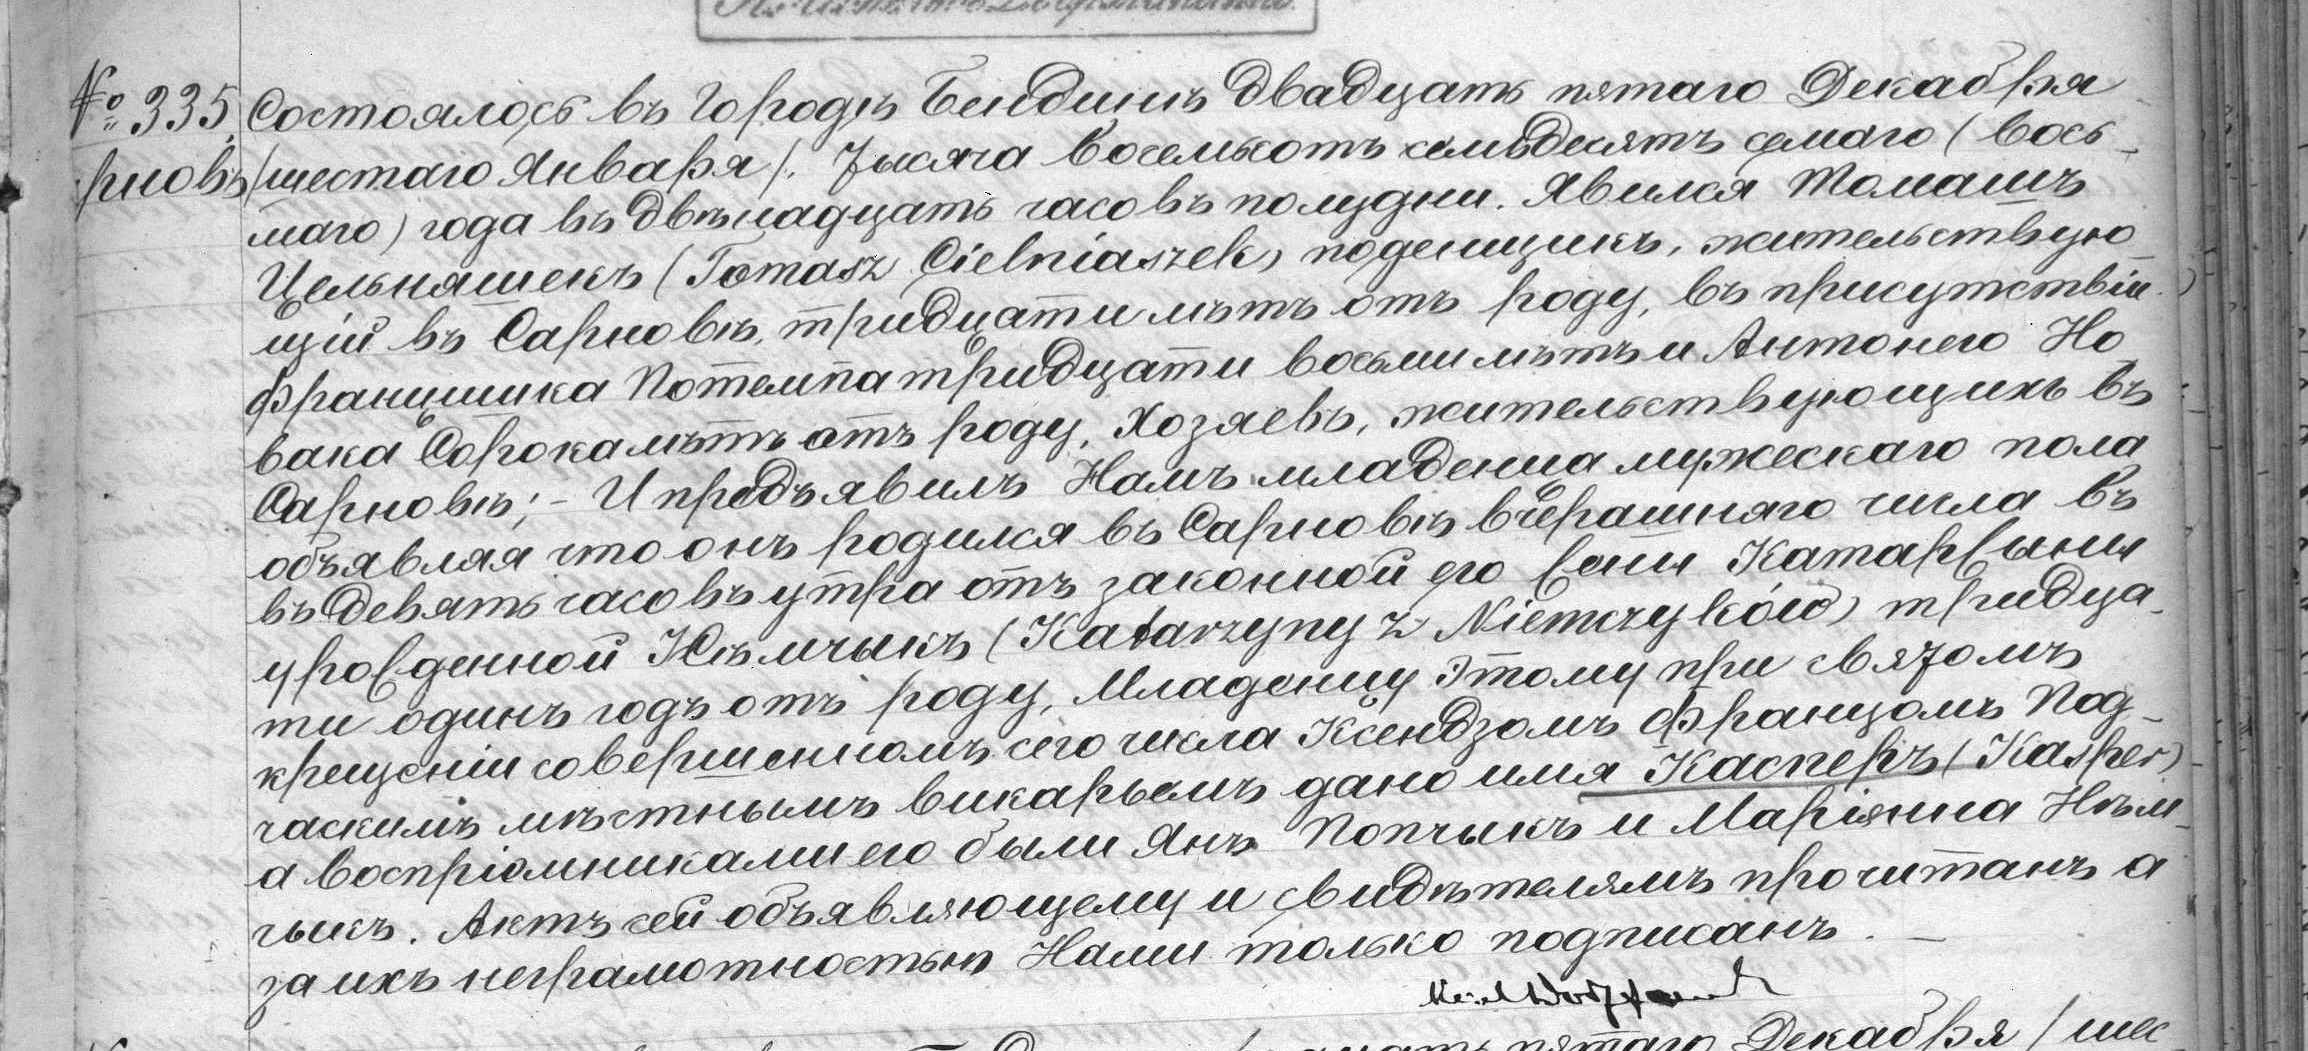 № 335. Состоялось въ городѣ Бендинѣ двадцать пятаго Декабря
рновъ /шестаго Января/. Тысяча восемьсотъ семьдесятъ седмаго (вось-
маго) года въ двѣнадцать часовъ полудни. Явился Томашъ
Цельняшекъ (Tomasz Cielniaszek) поденщикъ, жительствую
щій въ Сарновѣ, тридцати лѣтъ отъ роду, въ присутствіи
Францишка Потемпа тридцати восьми лѣтъ и Антонего Но
вака Сорока лѣтъ отъ роду, Хозяевъ, жительствующихъ въ
Сарновѣ; - И предъявилъ Намъ младенца мужескаго пола
объявляя что онъ родился въ Сарновѣ вчерашняго числа въ
въ девять часовъ утра отъ законной его Жены Катаржыны
урожденной Нѣмчикъ (Katarzyny z Niemczyków) тридца-
ти одинъ годъ отъ роду, Младенцу этому при святомъ
крещеніи совершенномъ сего числа Ксендзомъ Францомъ Под-
часкимъ мѣстнымъ викарьемъ дано имя Касперъ (Kasper)
а воспріемниками его были Янъ Попчыкъ и Маріянна Нѣм-
чыкъ. Актъ сей объявляющему и свидѣтелямъ прочитанъ а
за ихъ неграмотностью Нами только подписанъ. -
пятаго Декабря / шес